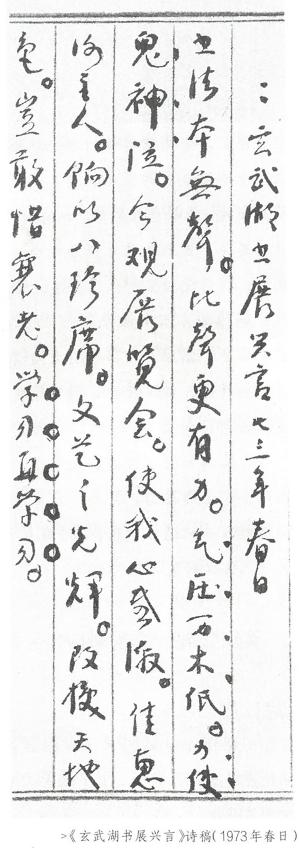 ：玄武湖书展兴言七三年春日
书法本無聲。比聲更有力。气压万木低。力使
鬼神泣。今观展覽会。使我心感激。佳惠
谢主人。餉以八珍席。文艺之光輝。改換天地
色。豈敢惜衰老。学习再学习。
>《玄武湖书展兴言》诗稿(1973年春日)